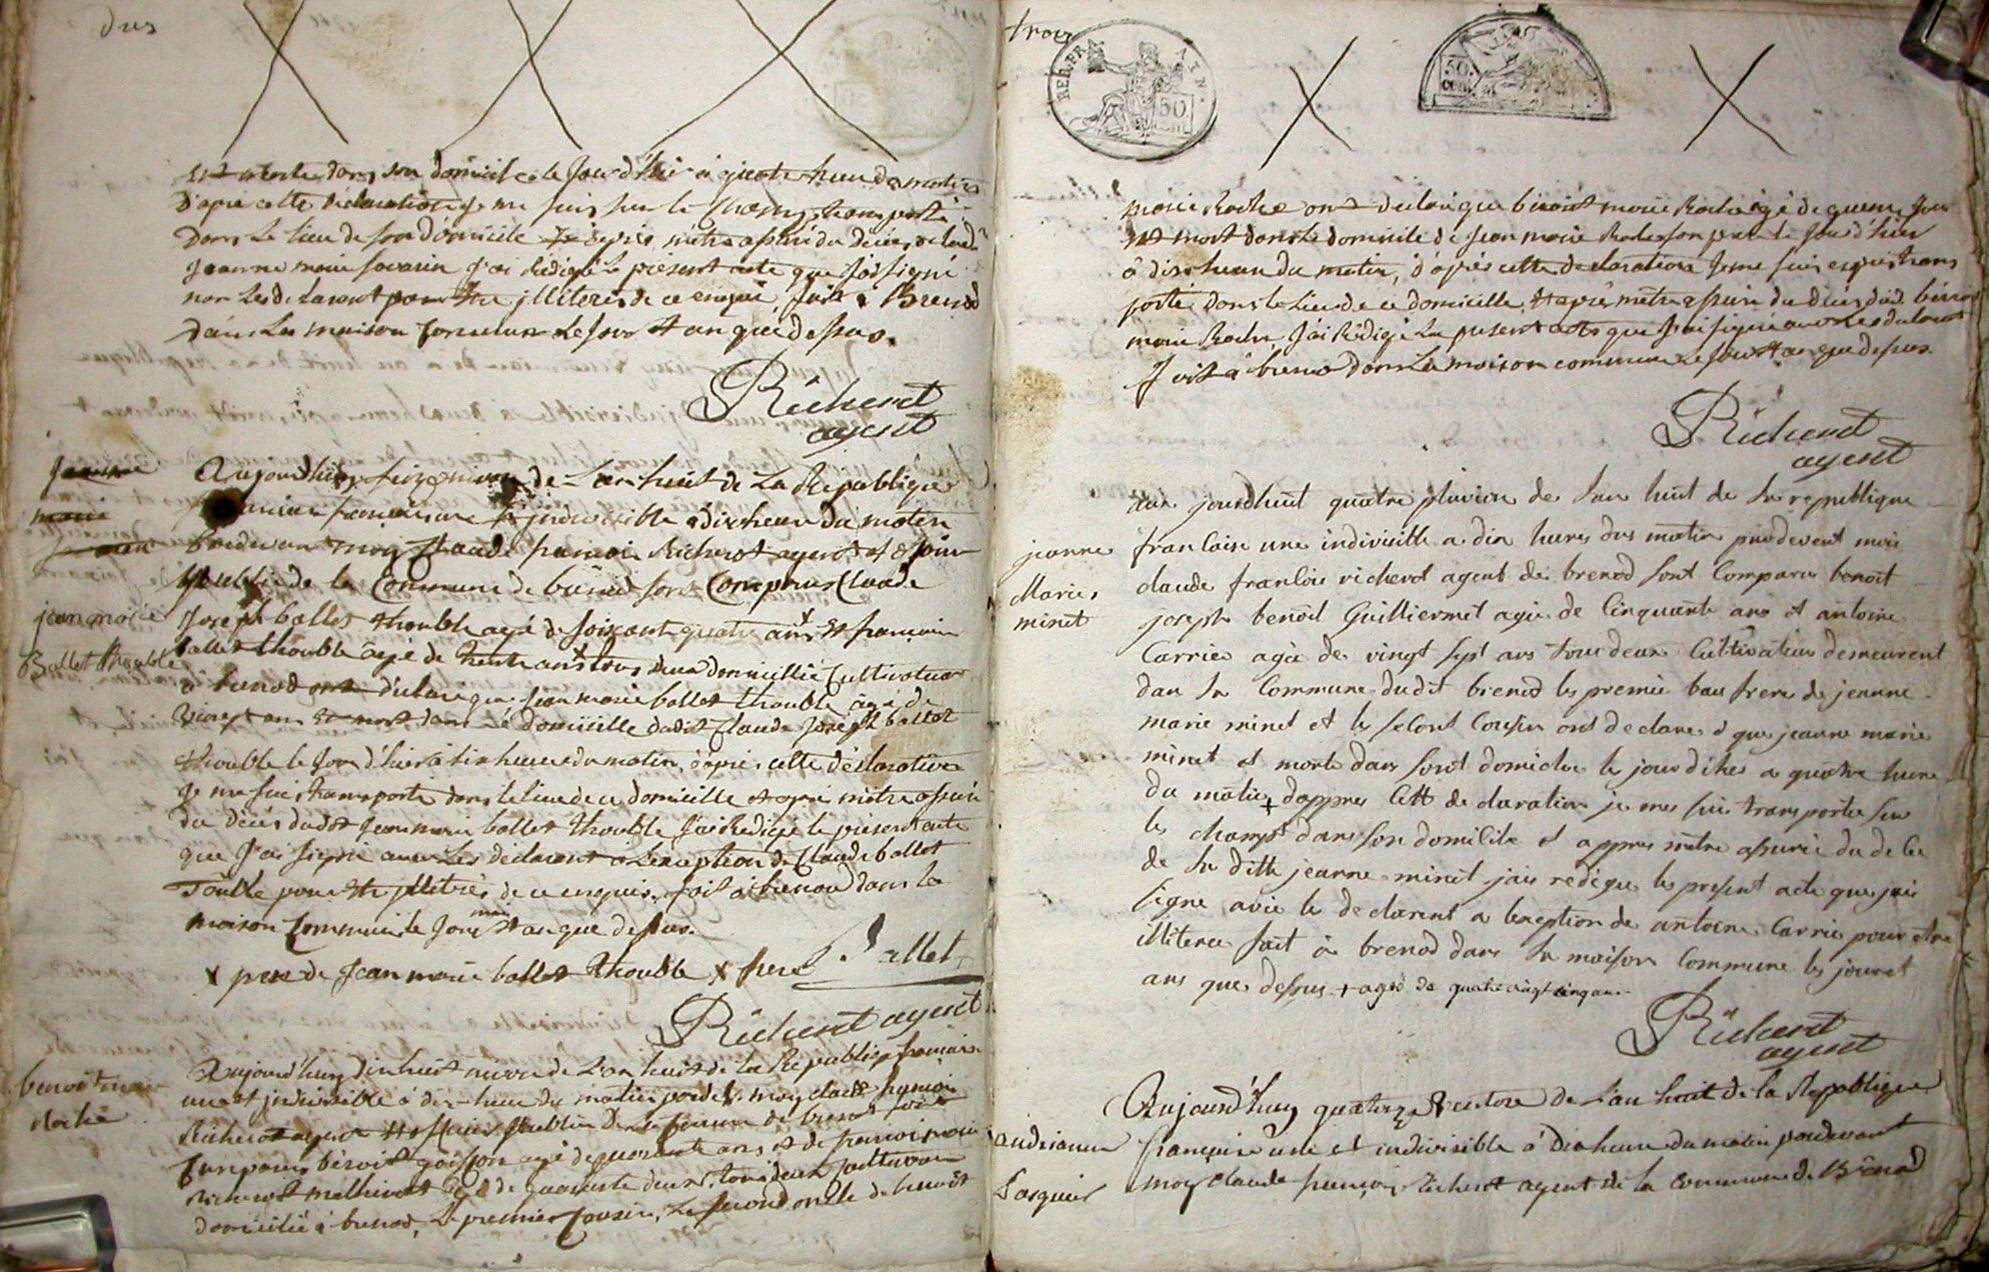 dus
est morte dans son domicile le Jour d'hier à quatre heure du matin
D'apres cette déclaration je me suis sur le Champ transporté
Dans Le lieu de son domicile et après m'être assuré du décès de ladte
Jeanne marie savarin J'ai Rédigé Le présent acte que J'ai signé
non Les déclarant pour être illiterés de ce enquis fait à Brenod
Dans La maison Commune Le Jour et an que dessus.
Richerot
agent
Jeanne
marie
jean marie
Ballet thouble
Aujourd'huy seize nivose de L'an huit de La République
française une et indivisible à dix heure du matin
pardevant moy Claude françois Richerot agent et officier
publique de la Commune de brenod sont Comparus Claude
Joseph ballet thouble agé de soixante quatre ans x et françois
ballet thouble agé de trente ans x tous deux domicillié Cultivateur
à brenod ont déclaré que Jean marie ballet thouble agé de
vingt ans est mort dans le domicille dudit Claude Joseph ballet
thouble le Jour d'hier à six heure du matin, d'après cette déclaration
Je me suis transporté dans le lieu de ce domicille et après m'être assuré
du décès dudit Jean marie ballet thouble J'ai Rédigé le présent acte
que J'ai signé avec Les déclarant à L'exception de Claude ballet
Touble pour être illiteré de ce enquis. fait à brenod dans la
maison Commune le Jour mois et an que dessus.
x pere de Jean marie ballet thouble x frere
Ballet
Richerot agent
benoit marie
Roche
Aujourd'huy dix huit nivose de L'an huit de la République française
une et indivisible à dix heure du matin pardevt moy claude françois
Richerot agent et officier publique de la Commune de brenod sont
Comparus benoit goisson agé de quarante ans et de françois marie
Richerot mathieret agé de quarante deux, tous deux cultivateur
domicilié à brenod, Le premier Cousin, Le second oncle de benoit
trois
REP. FRA
AIN.
50
cent.
50.
cent.
marie Roche ont declaré que benoit marie Roche agé de quinze Jour
est mort dans le domicile de Jean marie Roche son pere le Jour d'hier
à dix heure du matin, d'après cette déclaration Je me suis exprès trans
porté dans le lieu de ce domicille, et après m'être assuré du décès dudt benoit
marie Roche J'ai Rédigé Le present acte que J'ai signé avec Les declarant
Fait à brenod dans La maison commune Le Jour et an que dessus.
Richerot
agent
jeanne
Marie
minet
aux jourdhuit quatre pluviose de lan huit de la republique
francaise une indivisible a dix heures dus matin pardevent moi
claude francois richerot agent de brenod sont Comparus benoit
joseph benoit Guilliermet agée de Cinquante ans et antoine
Carrier agée de vingt sept ans tous deux Cultivateur demeurent
dan la Commune dudit brenod les premie bau frere de jeanne
marie minet et le selont Cousin ont declarer que jeanne marie
minet et morte dans sont domicile le jour dhier a quatre hure
du matin + dappres Cette declaration je mes suis transporter sur
les champs dans son domicile et appres metre assurée du decee
de la ditte jeanne minet jais rediger les present acte que jais
signe avec le declarent a lexeption de antoine Carrier pour etre
illiterer fait à brenod dans la maison Commune les jouret
ans que dessus + agee de quatre vingt cinq ans
Richerot
agent
andrianne
Pasquier
Aujourd'huy quatorze Ventose de L'an huit de la République
française une et indivisible à Dix heure du matin pardevant
moy claude françois Richerot agent de la commune de Brénod